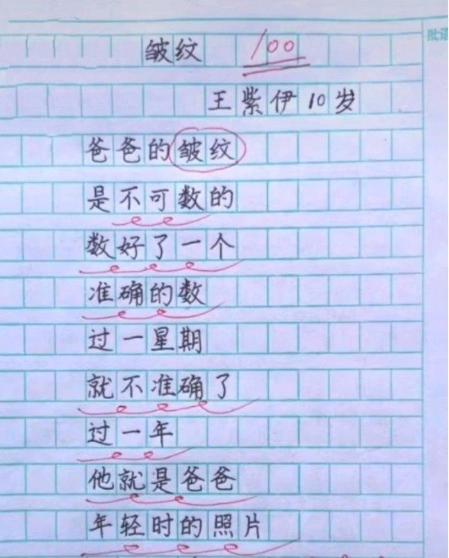 皱纹 100
王紫伊10岁
爸爸的皱纹
是不可数的
数好了一个
准确的数
过一星期
就不准确了
过一年
他就是爸爸
年轻时的照片